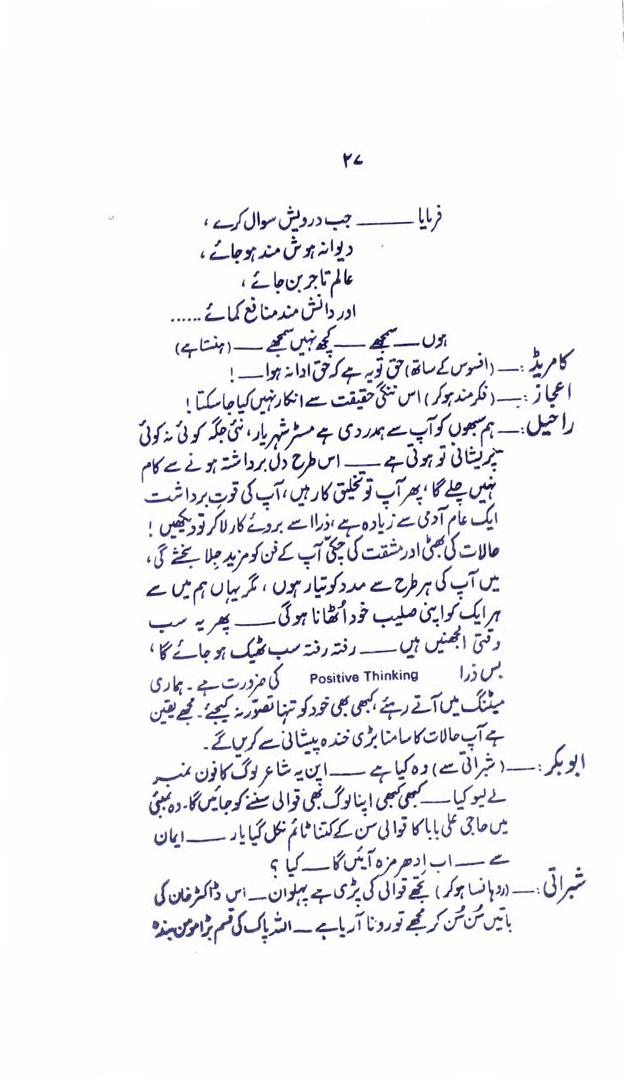 ۲۷
فرمایا ——— جب درویش سوال کرے ،
دیوانہ ہوش مند ہو جائے ،
عالم تاجر بن جائے ،
اور دانش مند منافع کمائے ......
ہوں —— سمجھے —— کچھ نہیں سمجھے —— (ہنستا ہے)
کامریڈ :— (افسوس کے ساتھ) حق تو یہ ہے کہ حق ادا نہ ہوا — !
اعجاز :— (فکر مند ہو کر) اس ننگی حقیقت سے انکار نہیں کیا جا سکتا !
راحیل :— ہم سبھوں کو آپ سے ہمدردی ہے مسٹر شہریار ، نئی جگہ کوئی نہ کوئی
پریشانی تو ہوتی ہے —— اس طرح دل برداشتہ ہونے سے کام
نہیں چلے گا ، پھر آپ تو تخلیق کار ہیں ، آپ کی قوتِ برداشت
ایک عام آدمی سے زیادہ ہے ، ذرا اسے بروئے کار لا کر تو دیکھیں !
حالات کی بھٹی اور مشقت کی چکّی آپ کے فن کو مزید جِلا بخشے گی ،
میں آپ کی ہر طرح سے مدد کو تیار ہوں ، مگر یہاں ہم میں سے
ہر ایک کو اپنی صلیب خود اُٹھانا ہوگی —— پھر یہ سب
وقتی الجھنیں ہیں —— رفتہ رفتہ سب ٹھیک ہو جائے گا ،
بس ذرا Positive Thinking کی ضرورت ہے ۔ ہماری
میٹنگ میں آتے رہئے ، کبھی بھی خود کو تنہا تصوّر نہ کیجئے ۔ مجھے یقین
ہے آپ حالات کا سامنا بڑی خندہ پیشانی سے کریں گے ۔
ابوبکر :— (شبراتی سے) وہ کیا ہے —— اپن یہ شاعر لوگ کا فون نمبر
لے لیو کیا —— کبھی کبھی اپنا لوگ بھی قوالی سننے کو جائیں گا ۔ وہ بمبئی
میں حاجی علی بابا کا قوالی سن کے کتنا ٹائم نکل گیا یار —— ایمان
سے —— اب اِدھر مزہ آئیں گا — کیا ؟
شبراتی :— (روہانسا ہو کر) تجھے قوالی کی پڑی ہے پہلوان — اس ڈاکٹر خان کی
باتیں سُن سُن کر مجھے تو رونا آ ریا ہے — اللہ پاک کی قسم بڑا مومن بندہ